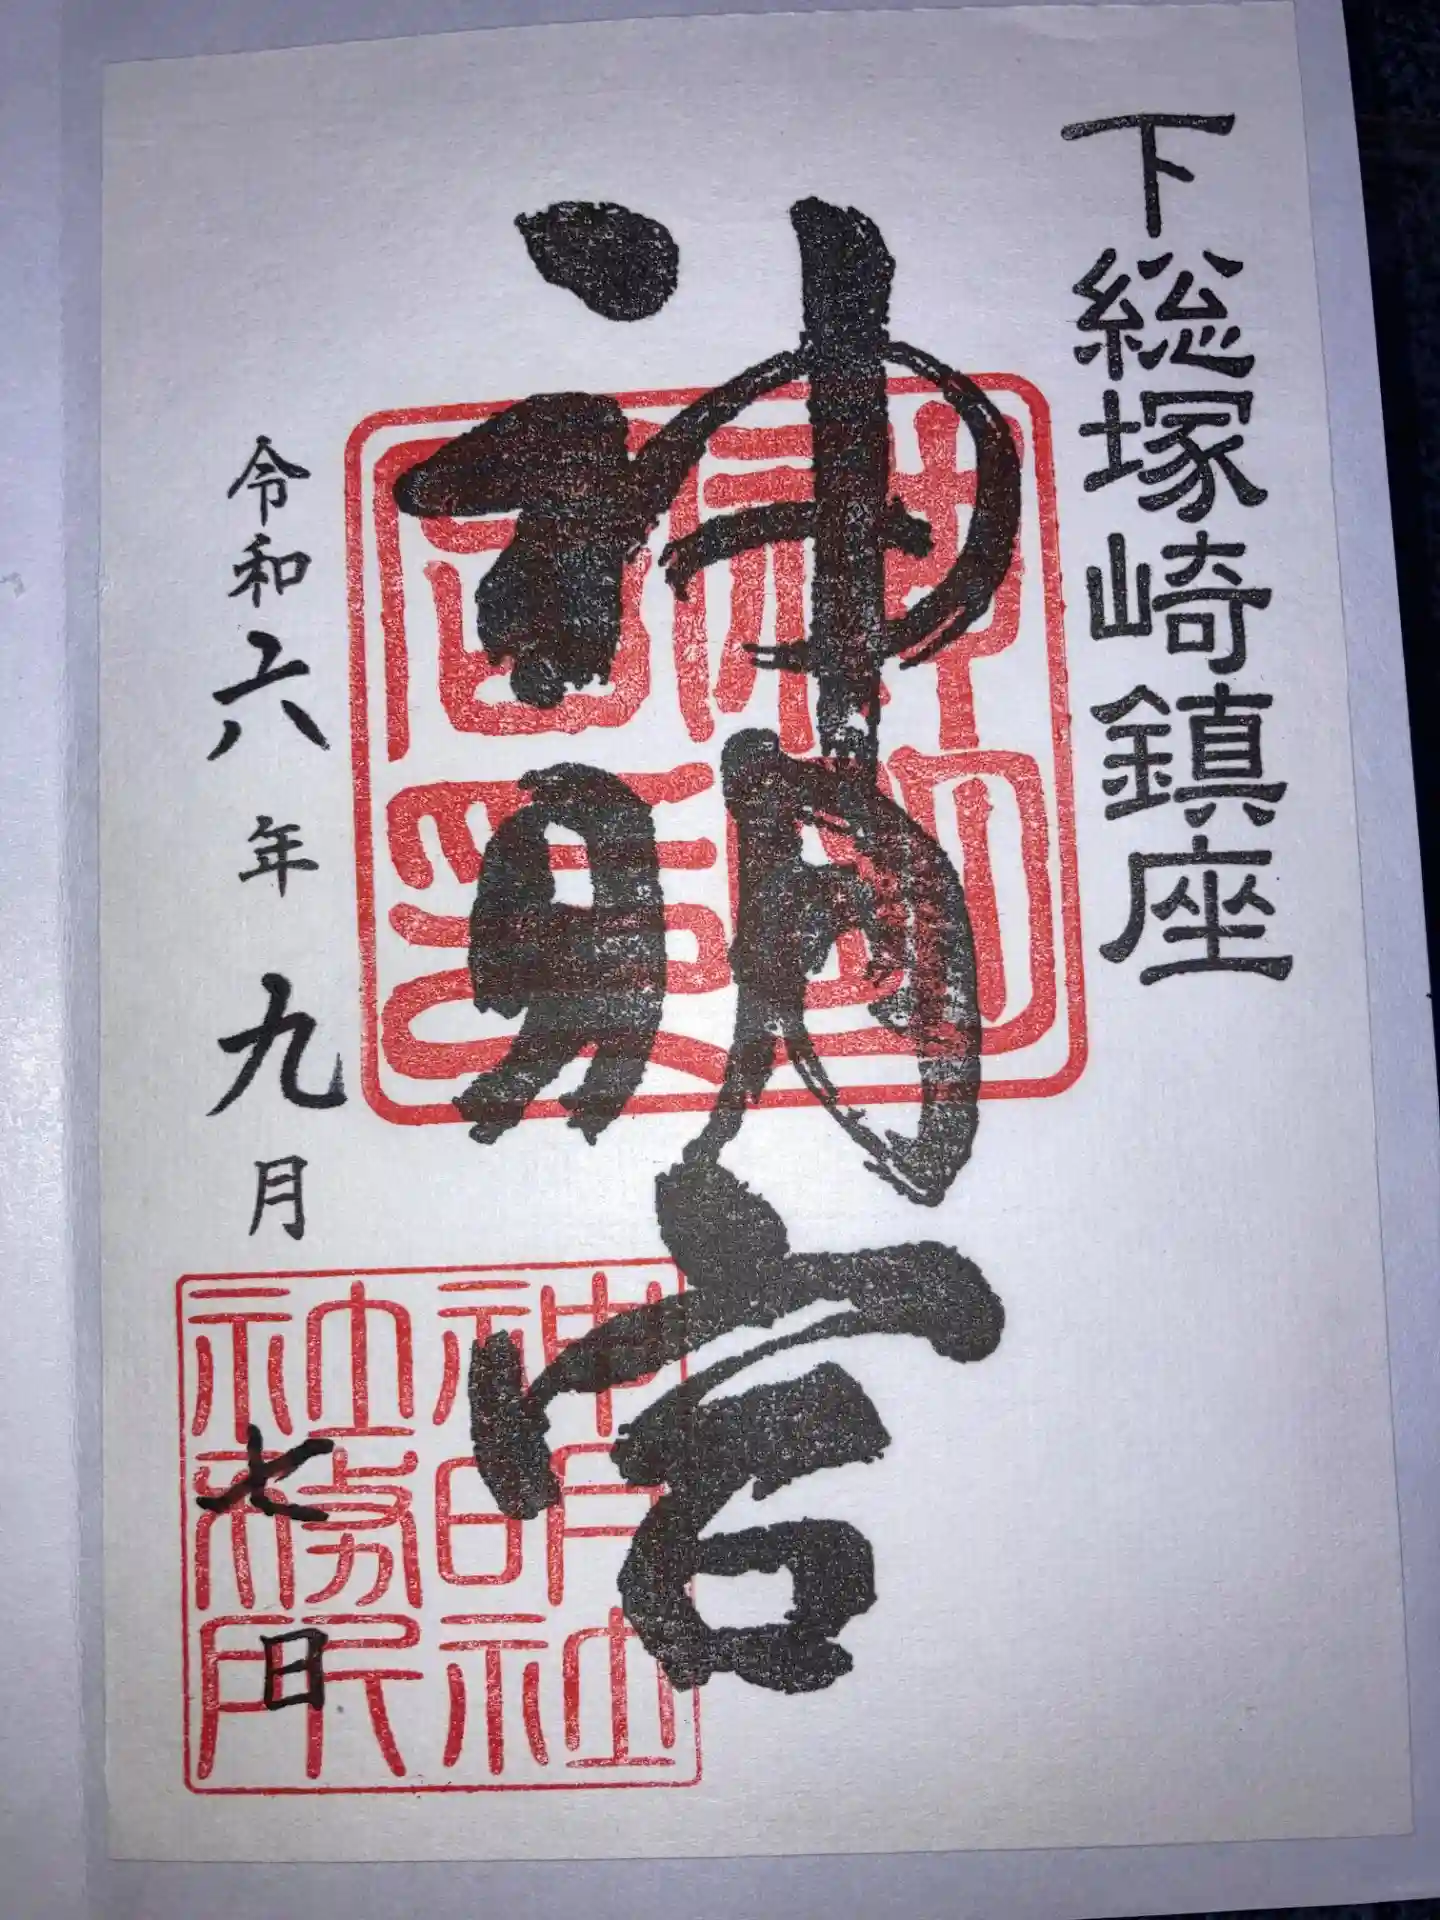 下総塚崎鎮座
神明宮
令和六年九月七日
神明社
社務所